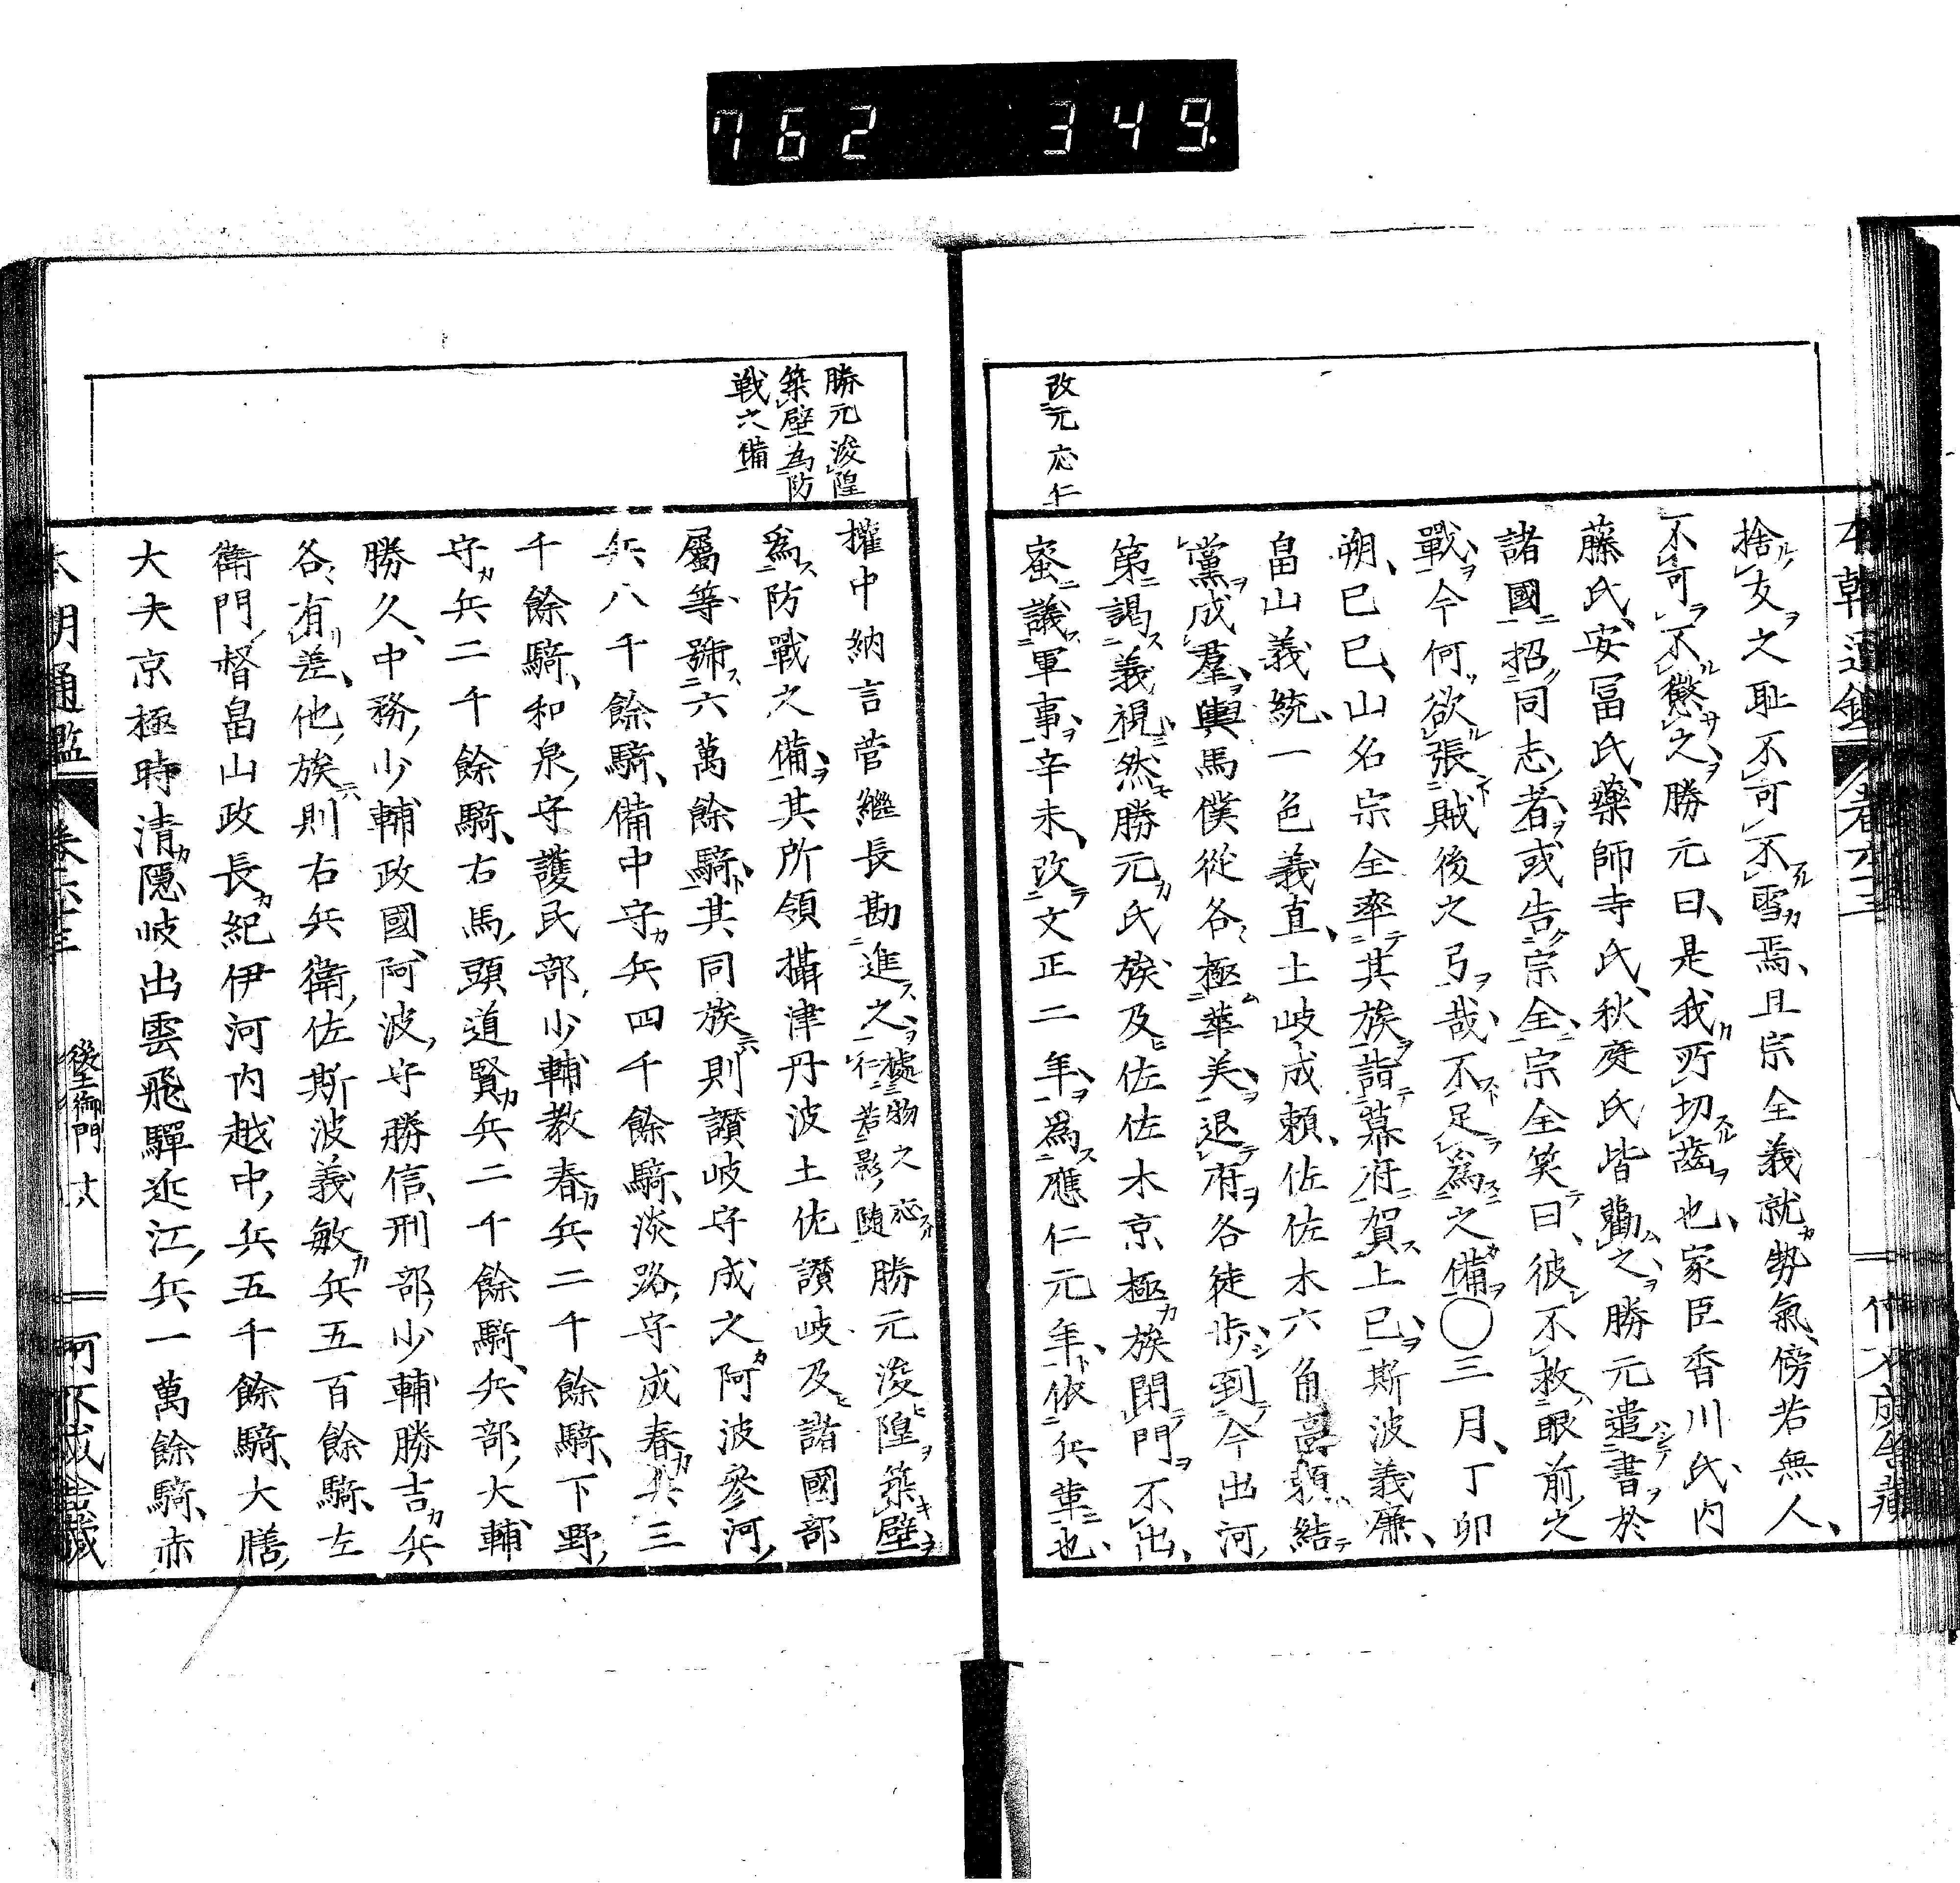 762 349
改元応仁
捨友之恥不可不雪焉、且宗全義就勢氣、傍若無人、
不可不懲之勝元曰、是我所切齒也、家臣香川氏、内
藤氏、安冨氏、藥師寺氏、秋庭氏皆勸之勝元遣書於
諸國招同志者或告宗全宗全笑曰、彼不救眼前之
戰今何欲張賊後之弓哉不足為之備〇三月、丁卯
朔、巳巳、山名宗全率其族詣幕府賀上巳斯波義廉、
畠山義統、一色義直、土岐成頼、佐佐木六角高頼結
黨成羣、輿馬僕從各極華美退府各徒歩到今出河
第謁義視然勝元氏族及佐佐木京極族閉門不出、
蜜議軍事辛未、改文正二年為應仁元年依兵革也、
本朝通鑑 卷六十三
勝元浚隍
築壁為防
戦之備
權中納言菅繼長勘進之據物之応行若影隨勝元浚隍築壁
為防戰之備其所領攝津丹波土佐讃岐及諸國部
屬等號六萬餘騎其同族則讃岐守成之阿波參河
兵八千餘騎、備中守兵四千餘騎、淡路守成春兵三
千餘騎、和泉守護民部少輔教春兵二千餘騎、下野
守兵二千餘騎、右馬頭道賢兵二千餘騎、兵部大輔
勝久、中務少輔政國、阿波守勝信、刑部少輔勝吉兵
各有差、他族則右兵衛佐斯波義敏兵五百餘騎、左
衛門督畠山政長紀伊河内越中兵五千餘騎、大膳
大夫京極時清隱岐出雲飛驒近江兵一萬餘騎、赤
本朝通鑑 卷六十三 後土御門 十六